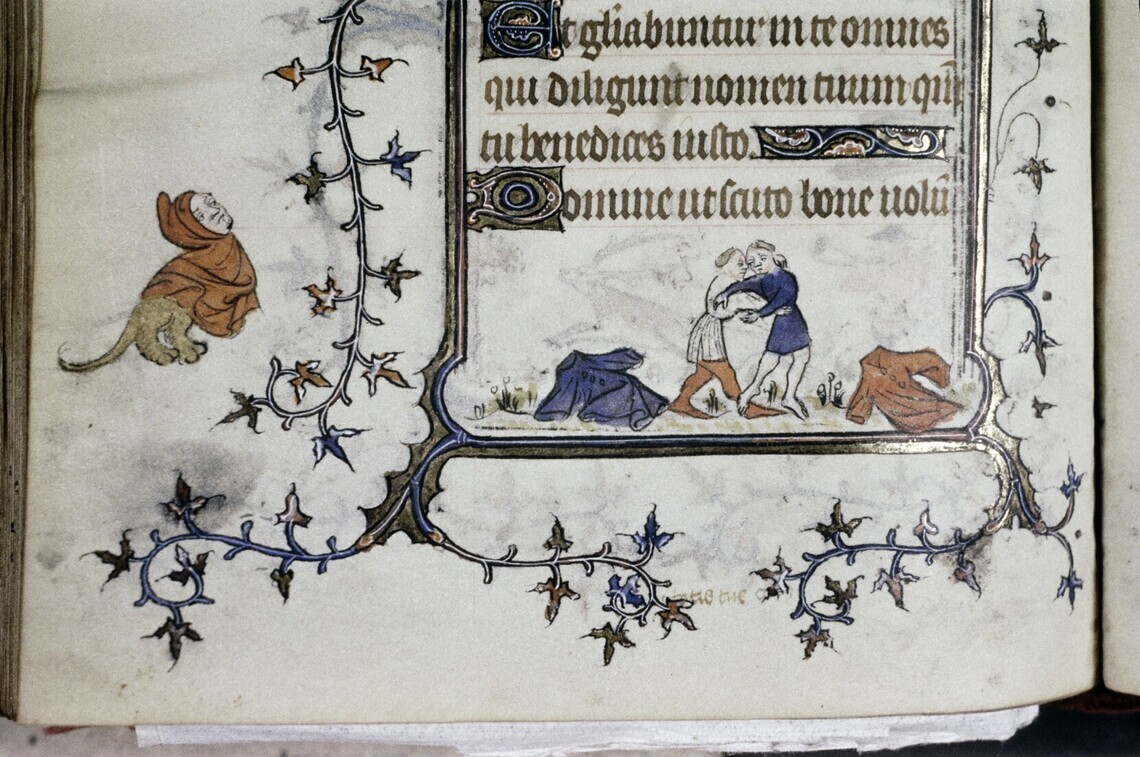 Et gl̃iabuntur in te omnes
qui diligunt nomen tuum qm̃
tu benedices iusto.
Domine ut scuto bone uolũ
tatis tue